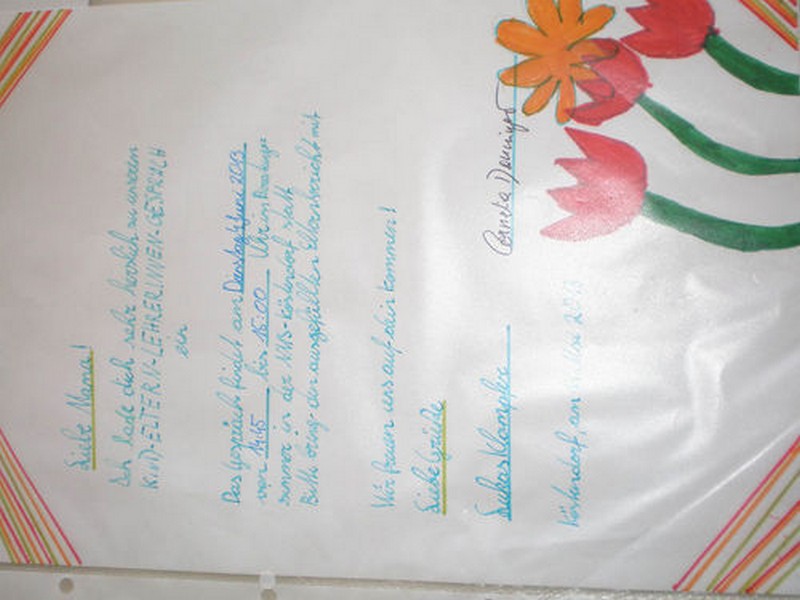 Liebe Mama!
Ich lade dich sehr herzlich zu unserem
KIND-ELTERN-LEHRER.INNEN-GESPRÄCH
ein
Das Gespräch findet am Dienstag, 4. Juni 2013
von 14:45 bis 15:00 Uhr im
in der NMS-Köstendorf statt.
Bitte bring den ausgefüllten mit
Wir freuen uns auf dein kommen!
Liebe Grüße
Lukas Cornelia
Köstendorf, am 2013